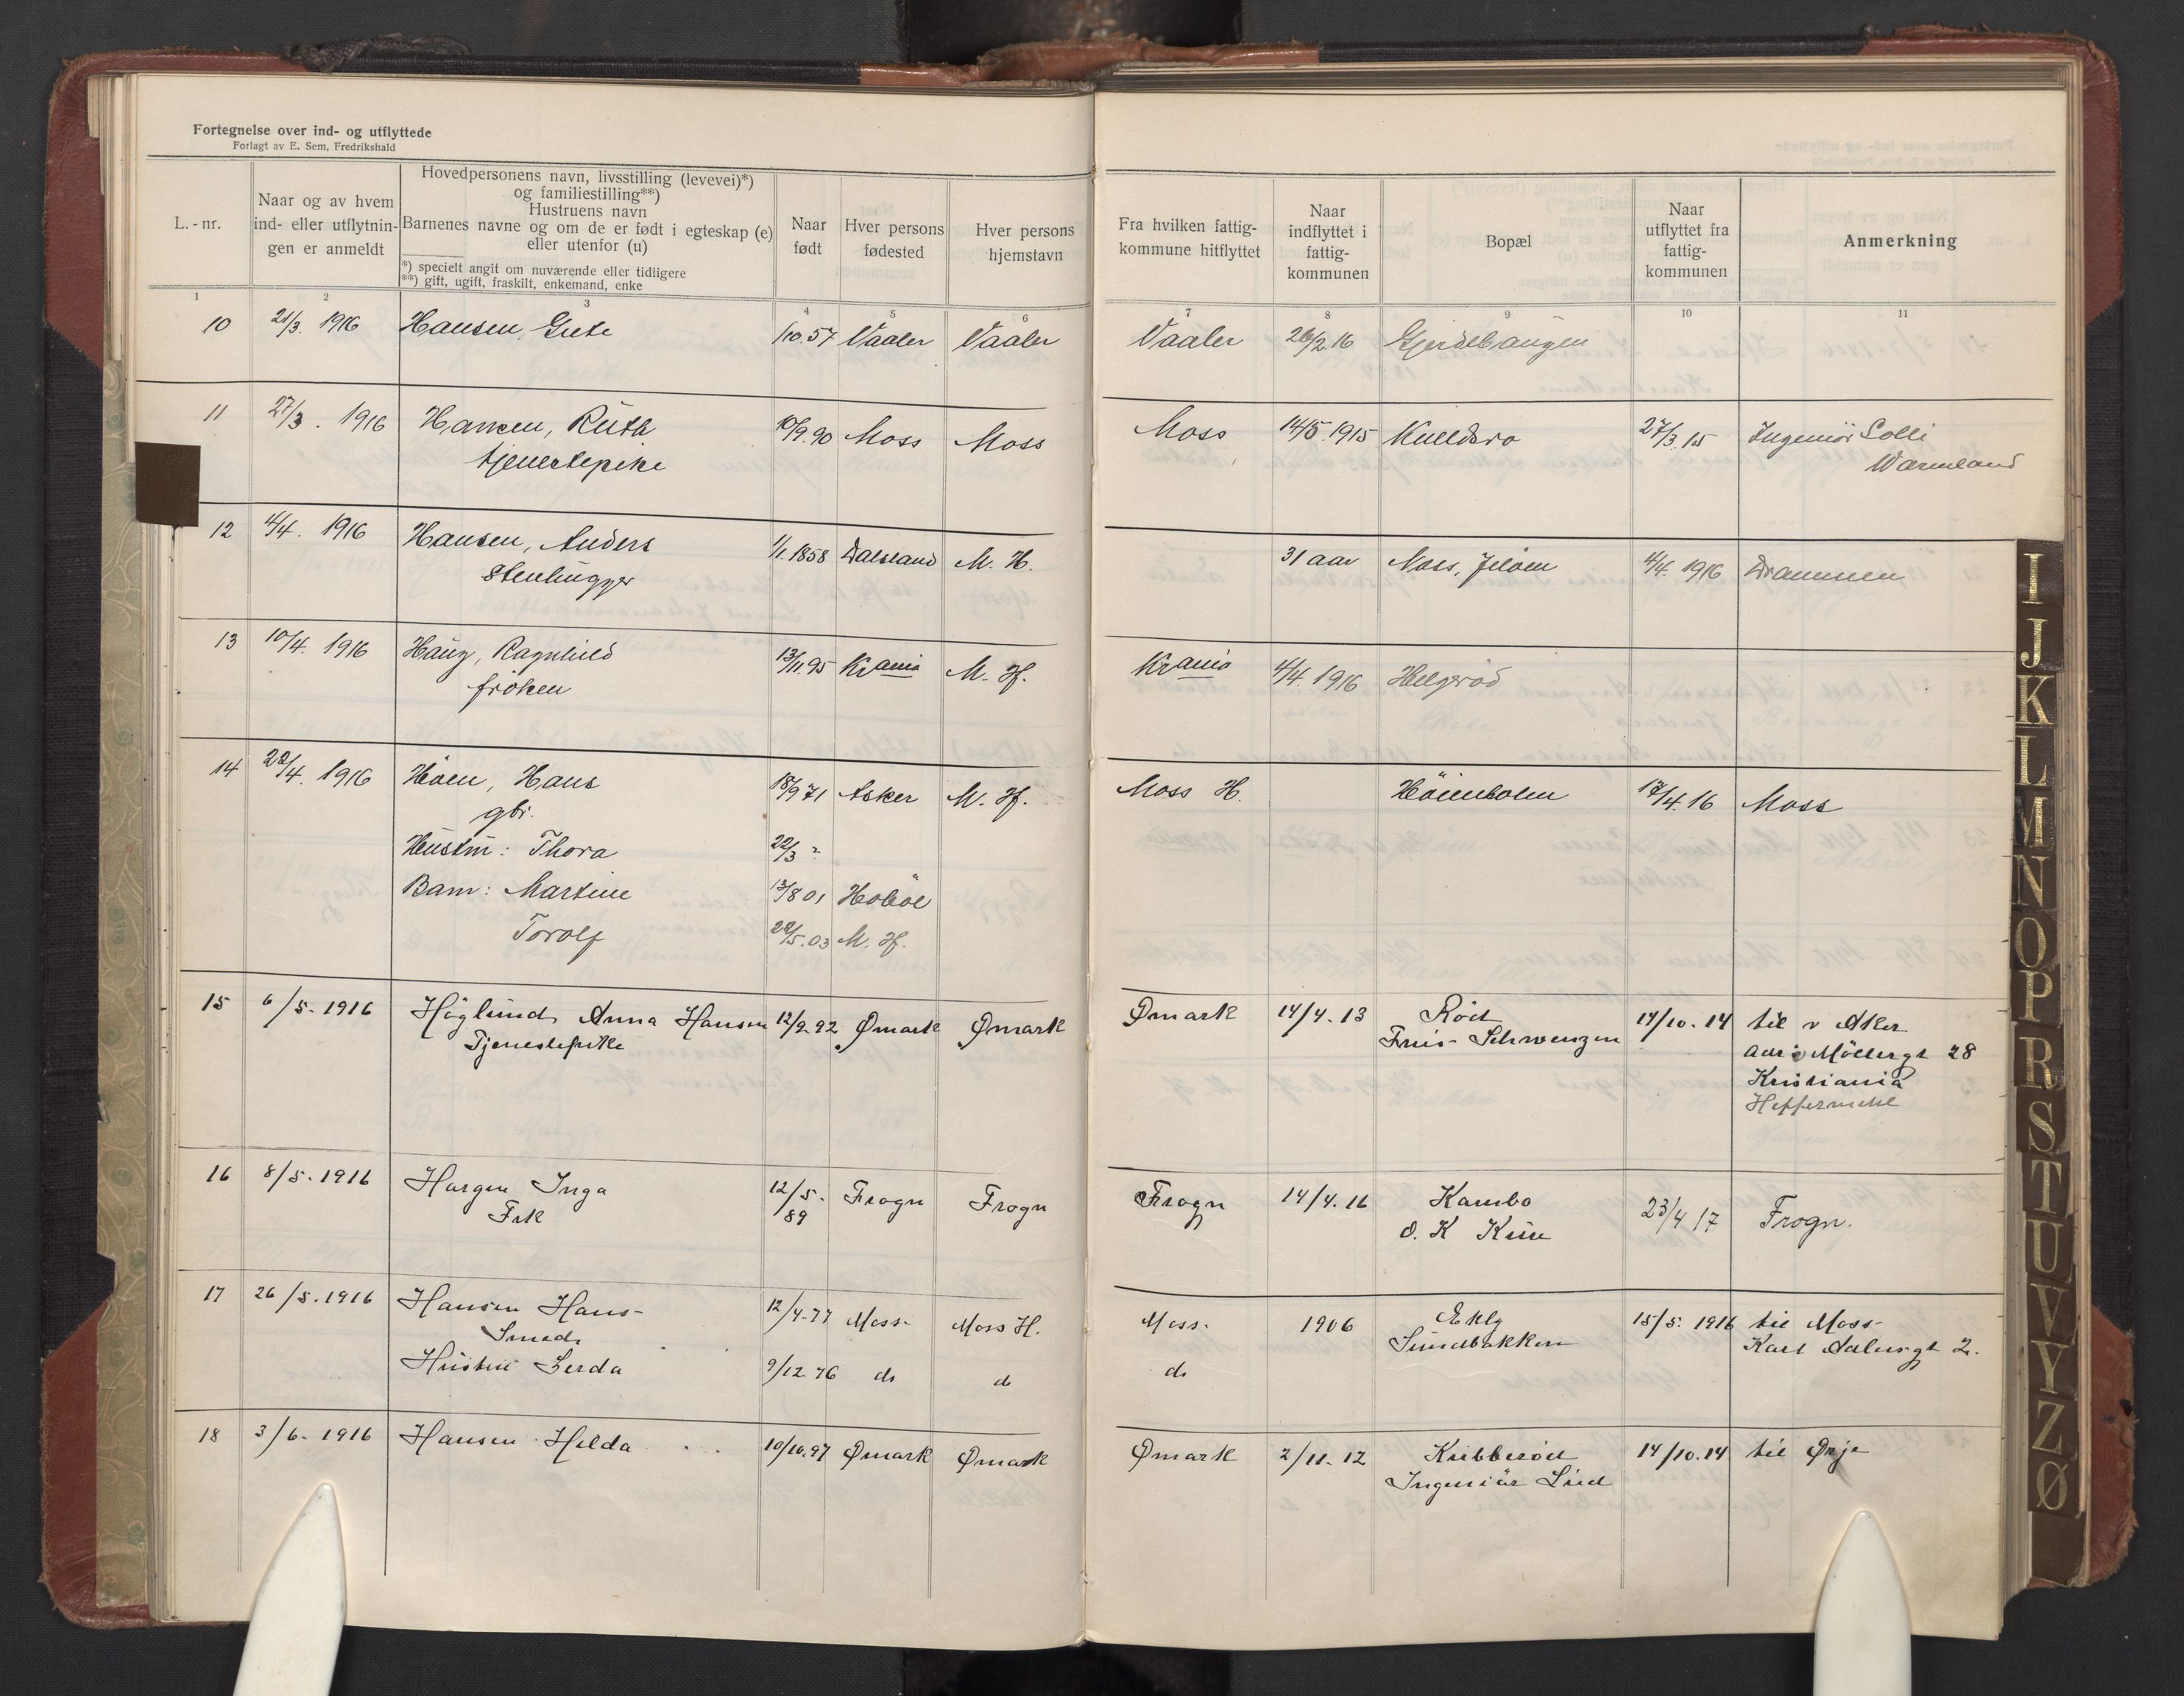 Fortegnelse over ind- og utflyttede
Forlagt av E. Sem, Fredrikshald
L.-nr.
Naar og av hvem
ind- eller utflytnin-
gen er anmeldt
Hovedpersonens navn, livsstilling (levevei)*)
og familiestilling**)
Hustruens navn
Barnenes navne og om de er født i egteskap (e)
eller utenfor (u)
*) specielt angit om nuværende eller tidligere
**) gift, ugift, fraskilt, enkemand, enke
Naar
født
Hver persons
fødested
Hver persons
hjemstavn
Fra hvilken fattig-
kommune hitflyttet
Naar
indflyttet i
fattig-
kommunen
Bopæl
Naar
utflyttet fra
fattig-
kommunen
Anmerkning
1 2 3 4 5 6 7 8 9 10 11
10 21/3. 1916 Hansen, Grete /10.57 Vaaler Vaaler Vaaler 26/2.16 Gjerdebaugen
11 27/3. 1916 Hansen, Ruth 10/9.90 Moss Moss Moss 14/5.1915 27/3.15 Ingeniör Solli
tjenestepike Warmland
12 4/4. 1916 Hansen, Anders 1/1.1858 Dalsland M. H. 31 aar Moss, Jelöen 4/4. 1916 Drammen
Stenhugger
13 10/4. 1916 Haug, Ragnhild 13/11.95 Krania M. H. Krania 4/4.1916 Helgerød
fröken
14 22/4. 1916 Höen, Hans 18/9 71 Asker M. H. Moss H. Höienholm 17/4.16 Moss
gbr.
Hustru: Thora 22/3 ?
Barn: Martine 13/8 01 Hobøl
Torolf 22/5.03 M. H.
15 6/5-1916 Höglund, Anna Hansen 12/9-92 Ømark Ømark Ømark 14/4.13 Röed 14/10.14 til v Aker
Tjenestepike Friis-Schwenzen adr: Möllergt 28
Kristiania
16 8/5-1916 Hargen Inga 12/5- Frogn Frogn Frogn 14/4.16 Kambo 23/4 17 Frogn.
Frk 89 O. K
17 26/5.1916 Hansen Hans- 12/4-77 Moss- Moss H. Moss- 1906 Ekly 15/5. 1916 til Moss-
Smed. Sundbakken Karl Adlersgt 2.
Hustru Gerda 9/12 76 do do do
18 3/6-1916 Hansen Helda 10/10.97 Ømark Ømark Ømark 2/11-12 Kubberöd 14/10.14 til Ørje
Ingeniör Lied
I
J
K
L
M
N
O
P
R
S
T
U
V
Y
Z
Ø